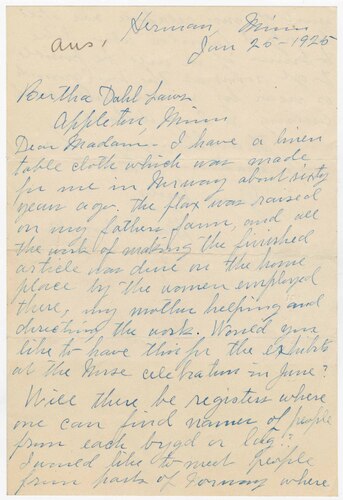 Herman, Minn
ans,
Jan 25-1925
Bertha Dahl Laws
Appleton, Minn
Dear Madam - I have a linen
table cloth which was made
for me in Norway about sixty
years ago. The flax was raised
on my father farm, and all
the work of making the finished
article was done on the home
place by the women employed
there, my mother helping and
directing the work. Would you
like to have this for the exhibits
at the Norse celebration in June?
Will there be registers where
one can find names of people
from each bygd or lag?
I would like to meet people
from parts of Norway where